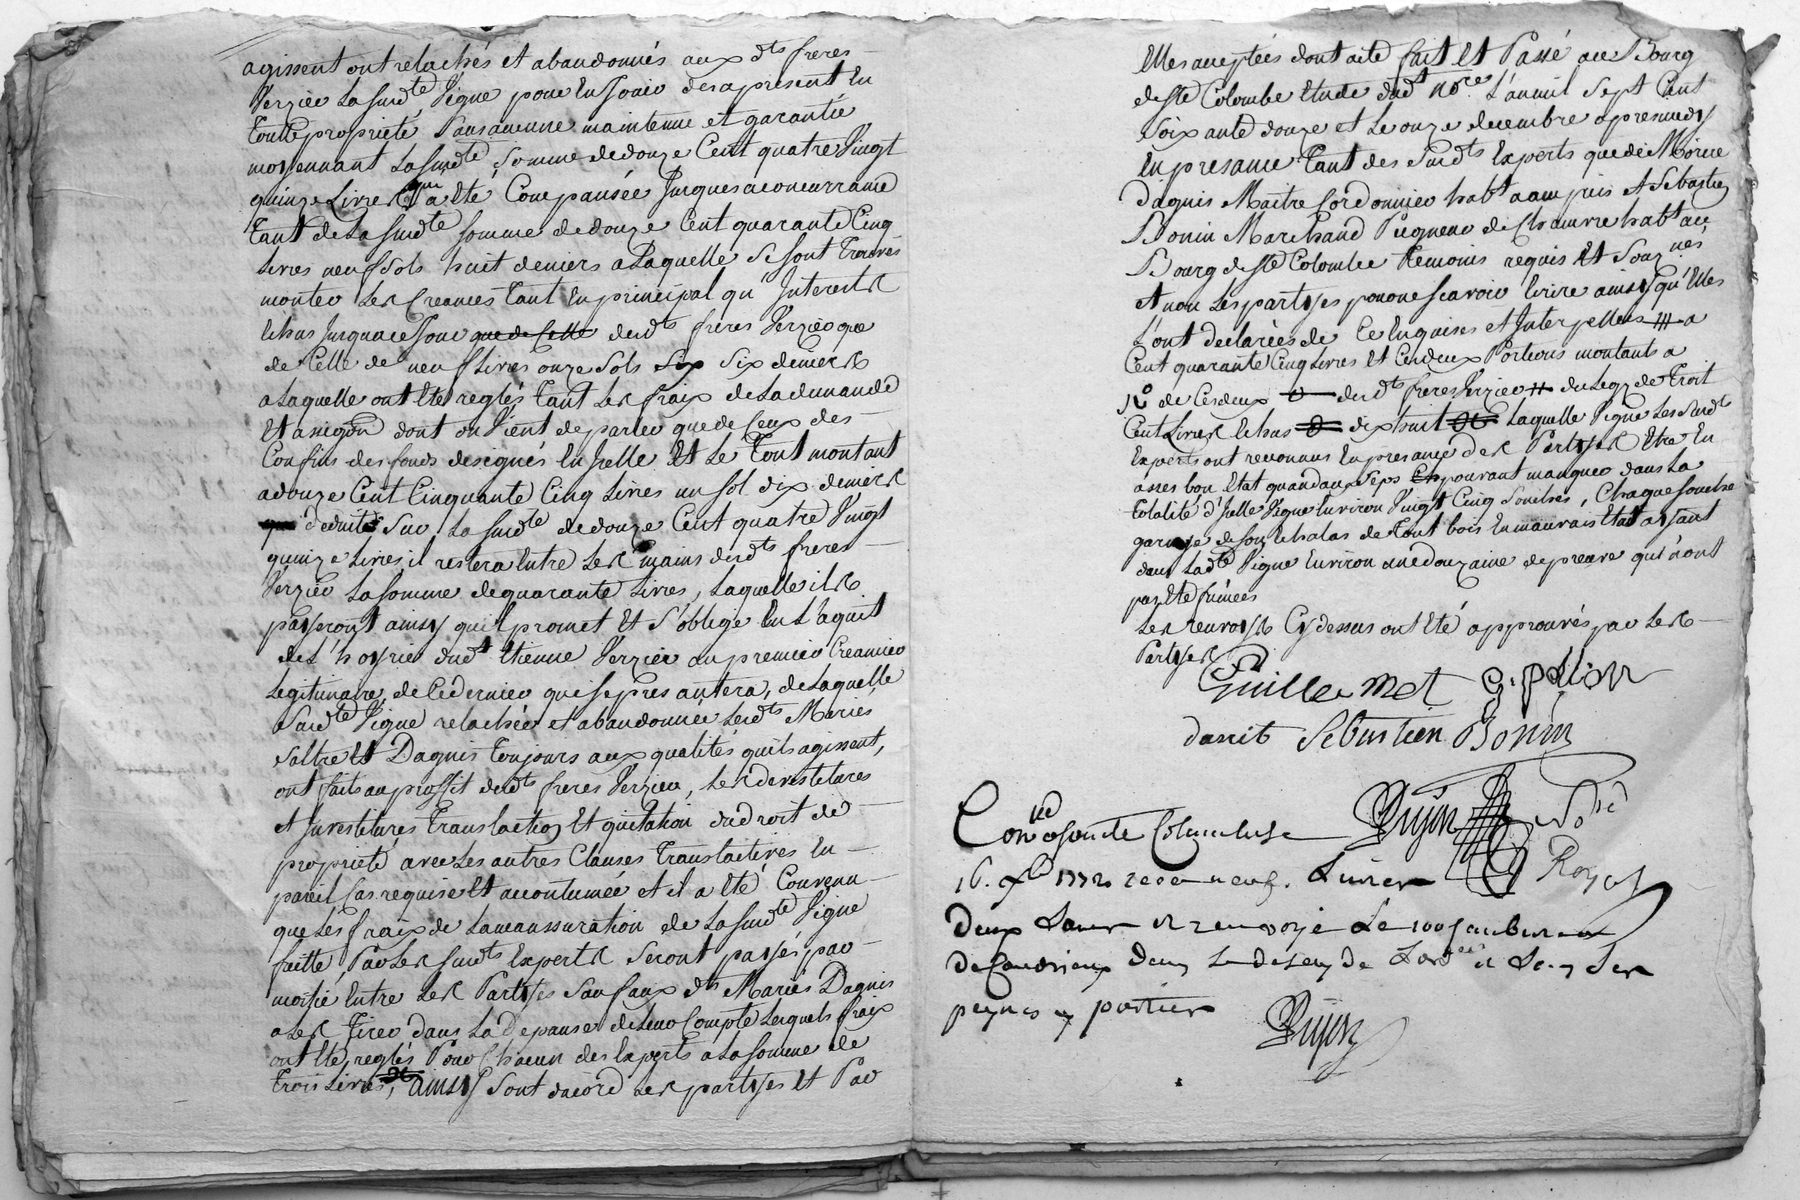 agissent ont relachés et abandonnés aux dts freres
Verzier la susdte Vigne pour en Jouir des apresent en
toutte proprieté Sans aucune maintenue et garantie
moyennant la susdte Somme de douze Cent quatre Vingt
quinze Livres qui a eté Compansée Jusques a concurrance
tant de la susdte somme de douze Cent quarante Cinq
Livres neuf sols huit deniers a Laquelle se sont trouvés
monter les Creances tant en principal qu'Interests
Echus Jusqu'a ce Jour que de Celle desdts freres Verzier que
de Celle de neuf Livres onze sols six six deniers
a Laquelle ont eté reglés tant les fraix de La demande
Et assigon dont on Vient de parler que de Ceux des
Confins des fonds designés en Jcelle Et Le tout montant
a douze Cent Cinquante Cinq Livres un sol dix deniers
deduite Sur La susdte de douze Cent quatre Vingt
quinze Livres il restera Entre les mains desdts freres
Verzier La somme de quarante Livres, Laquelle ils
payeront ainsy qu'il promet et s'oblige En L'aquit
de L'hoyrie dudt Etienne Verzier au premier Creancier
Legitimaire, de Ce dernier qui se presantera, de Laquelle
Susdte Vigne relachée et abandonnée Lesdts Mariés
Saltre Et Daguis toujours aux qualités qu'ils agissent,
ont faits au proffit desdts freres Verzier, les devestitures
et Jnvestitures translaction Et quitation du droit de
proprieté avec Les autres Clauses translatives En
pareil Cas requise Et accoutumée et il a eté Convenu
que Les fraix de La manssuration de La susdte Vigne
faitte Par les susdts Experts Seront payés par
moitié Entre les Partyes Sauf aux dts Mariés Daguis
a les tirer dans La Depanse de Leur Compte Lesquels fraix
ont eté reglés Pour Chacun des Experts a La somme de
trois Livres, ainsy Sont dacord les partyes Et Par
Elles acceptées dont acte fait Et Passé au Bourg
de Ste Colombe Etude dudt nore L'an mil Sept Cent
Soixante douze et Le onze decembre apres midy
En presance tant des Susdts Experts que de
Daguis Maitre Cordonnier habt a ampuis et Sebastien
Bonin Marchand Piegneur de Chanvre habt au
Bourg de Ste Colombe temoins requis Et Souznés
Et non Les partyes pour ne scavoir Ecrire ainsy qu'Elles
L'ont declarées de Ce Enquises et Jnterpellées a
Cent quarante Cinq Livres Et Ces deux Portions montants a
de Ces deux desdts freres Verzier du Legz de troit
Cent Livres Echus dix huit Laquelle Vigne Les susdt
Experts ont reconnus En presance des Partyes Etre En
asses bon Etat quand aux Seps pouvant manquer dans La
totalité d'Jcelle Vigne Environ Vingt Cinq Souches, Chaque souche
garnye de son Echalas de tout bois En mauvais Etat ayant
dans Ladte Vigne Environ une douzaine de preave qui n'ont
pas eté fumées
Les renvoys Cy dessus ont Eté approuvés par les
Partyes
Guillermet G. pelion
Sebastien Bonin
Conlé a sainte Colombe Dujon
16. Xbre 1772 receu neuf Livres Royal
Deux Sols et renvoyé Le 100e au bureau
de Condrieux dans Le delay de sous les
peynes y portées
Dujon